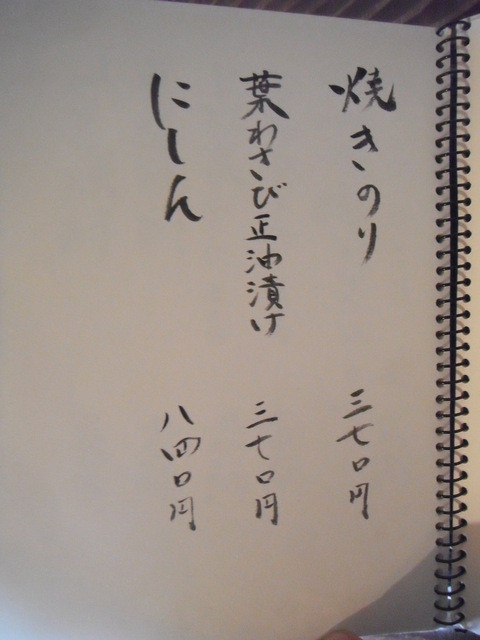 焼きのり 三七〇円
葉わさび正油漬け 三七〇円
にしん 八四〇円